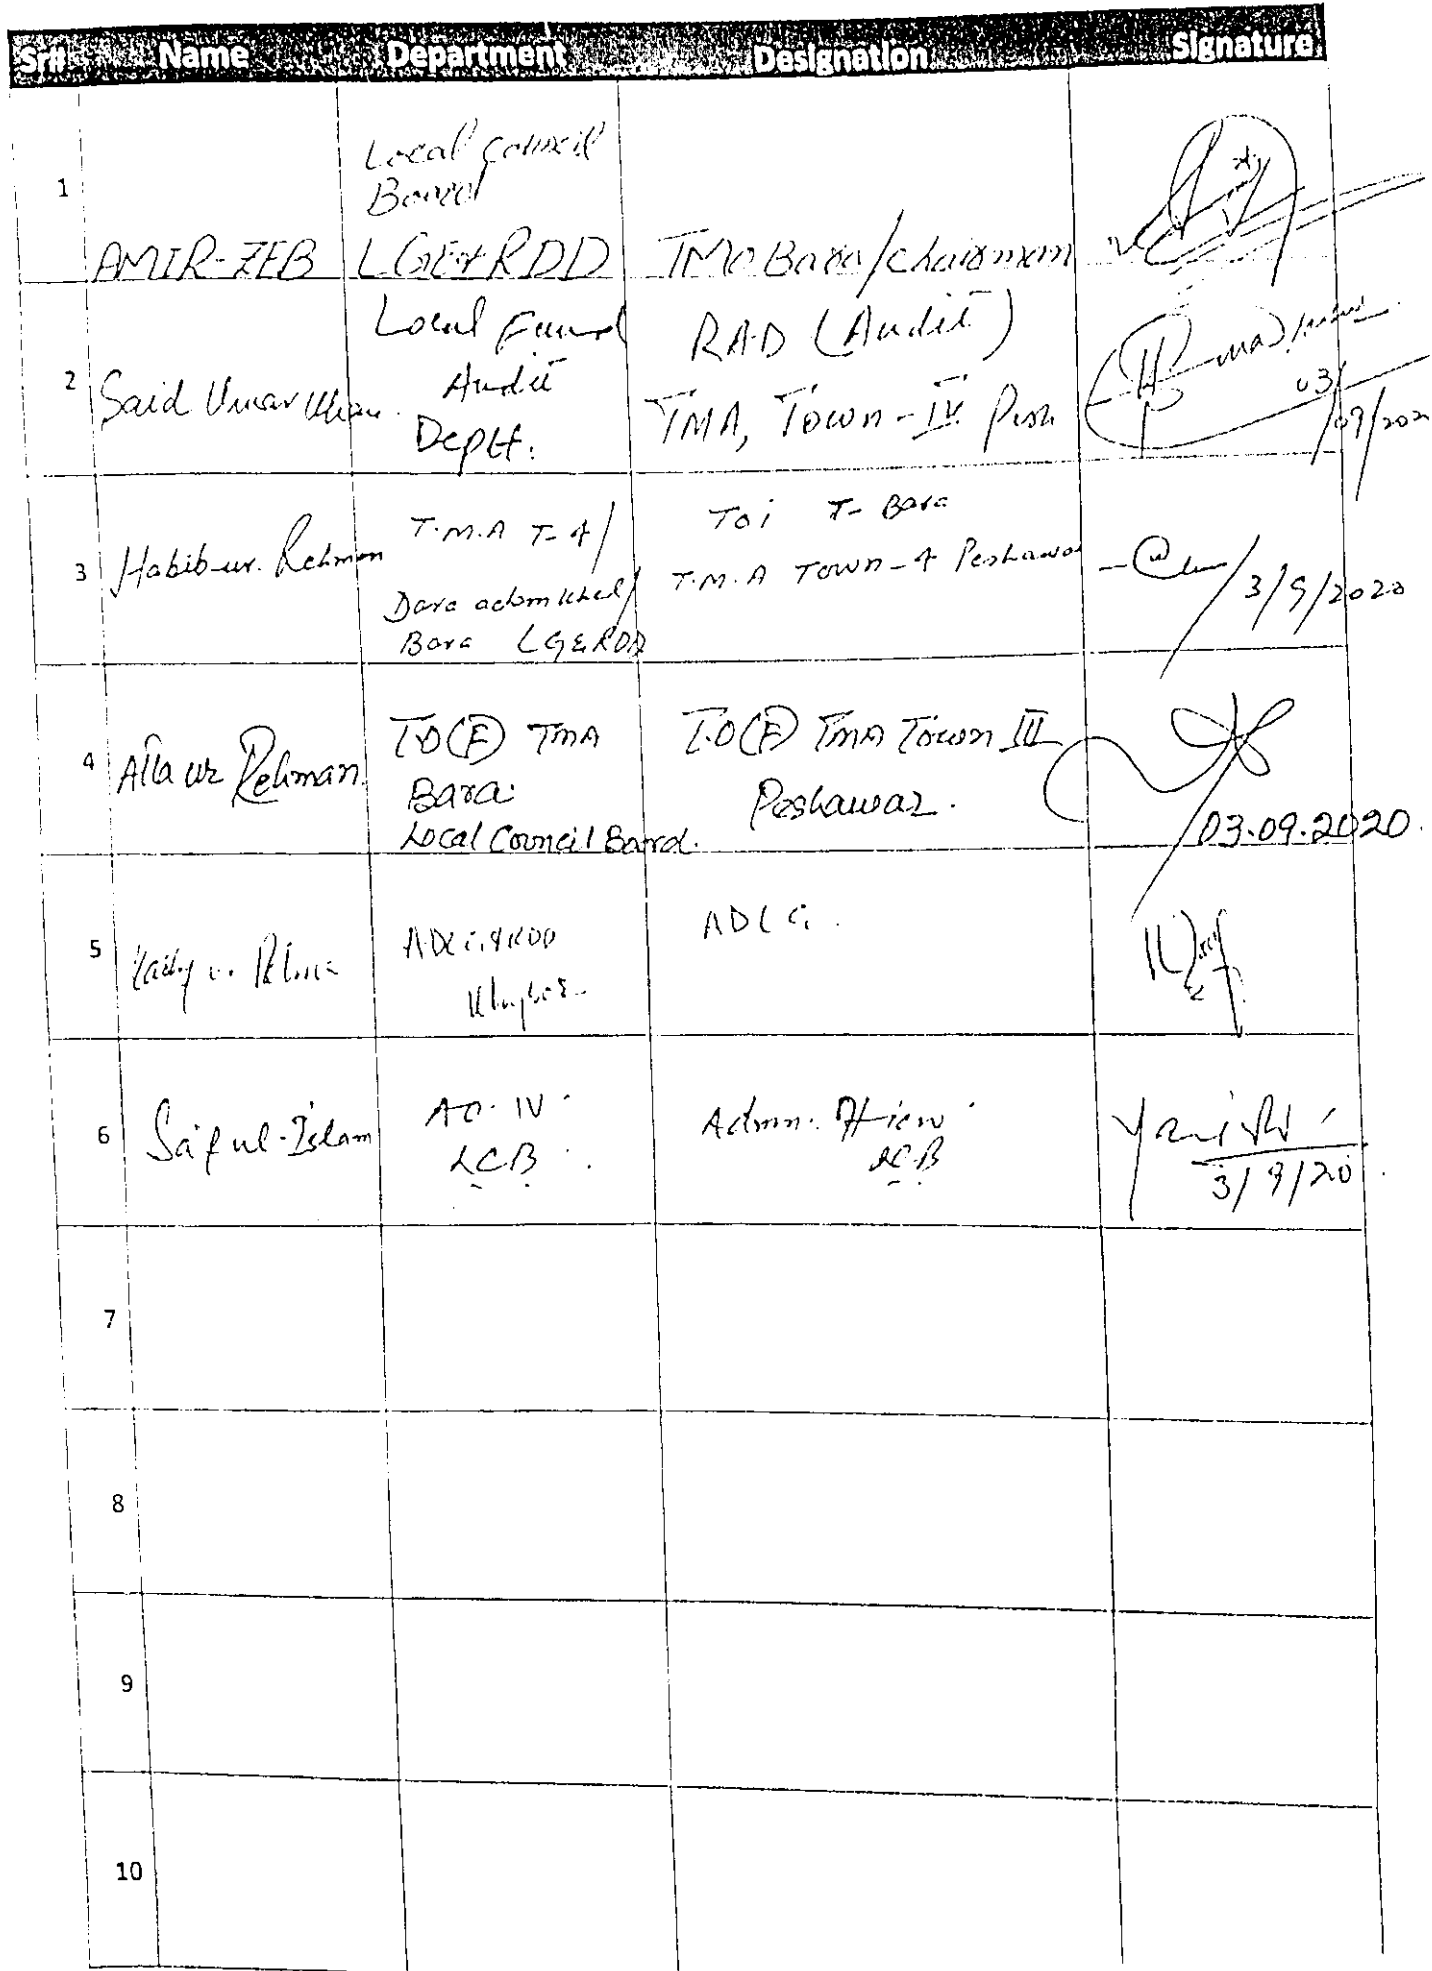 Sr# Name Department Designation Signature
1
Local Council
Board
AMIR-ZEB LGE&RDD TMO Bara/Chairman
2
Said Umar Khan
Local Fund
Audit
Deptt.
RAD (Audit)
TMA, Town-IV Pesh
03/09/202
3
Habib-ur-Rehman
T.M.A T-4/
Dara adam khel/
Bara LGERDD
Toi T- Bara
T.M.A Town-4 Peshawar
3/9/2020
4
Atta ur Rehman.
T.O(F) TMA
Bara.
Local Council Board.
T.O(F) TMA Town III
Peshawar.
03.09.2020.
5
ADLG&RDD
Khyber
ADLG.
6
Saif ul-Islam
AO-IV
LCB
Admn. Officer
LCB
3/9/20
7
8
9
10